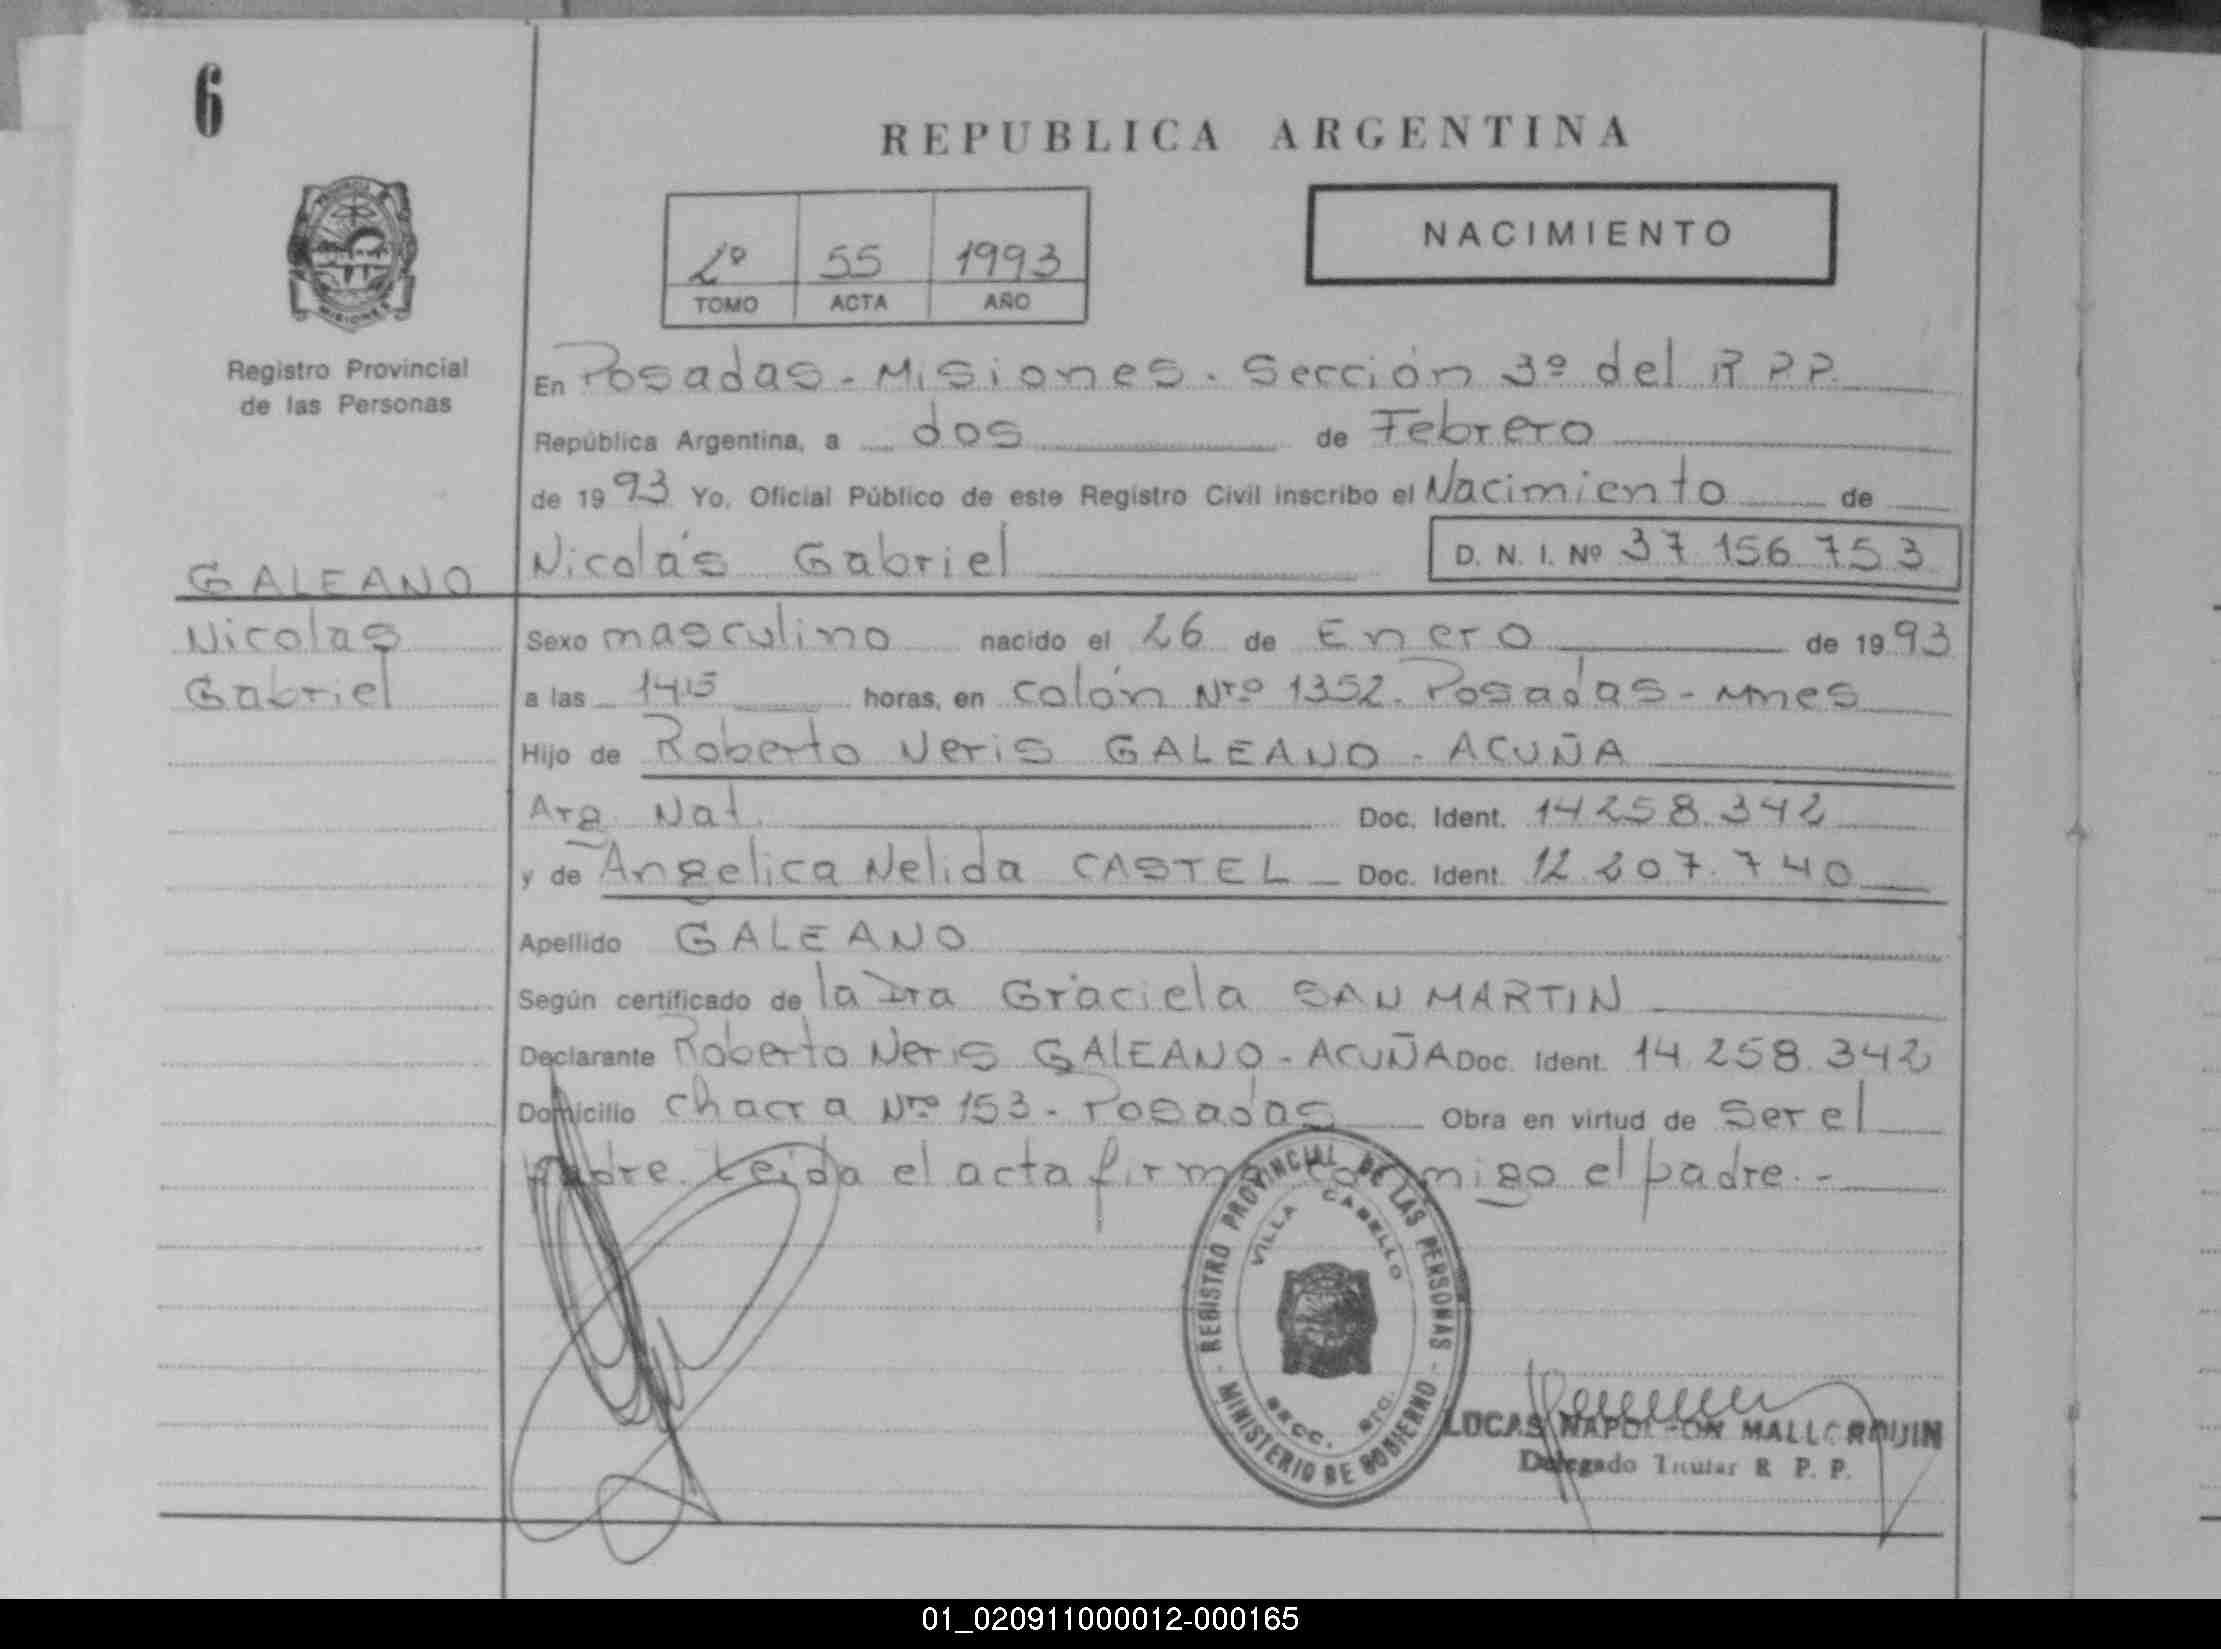 6
REPUBLICA ARGENTINA
NACIMIENTO
2º 55 1993
TOMO ACTA AÑO
MISIONES
Registro Provincial
de las Personas
En Posadas - Misiones. Sección 3º del R P.P.
República Argentina, a dos de Febrero
de 1993 Yo, Oficial Público de este Registro Civil inscribo el Nacimiento de
Nicolás Gabriel D. N. I. Nº 37.156.753
GALEANO
Nicolas
Gabriel
Sexo masculino nacido el 26 de Enero de 1993
a las 14,15 horas, en Colón Nro 1352. Posadas - Mnes
Hijo de Roberto Neris GALEANO - ACUÑA
Arg. Nat. Doc. Ident. 14.258.342
y de Angelica Nelida CASTEL Doc. Ident. 12.207.740
Apellido GALEANO
Según certificado de la Dra Graciela SAN MARTIN
Declarante Roberto Neris GALEANO - ACUÑA Doc. Ident. 14.258.342
Domicilio Chacra Nro 153 - Posadas Obra en virtud de ser el
padre. Leida el acta firma conmigo el padre.-
REGISTRO PROVINCIAL DE LAS PERSONAS
VILLA CABELLO
SECC. 3ra.
MINISTERIO DE GOBIERNO
LUCAS NAPOLEON MALLORQUIN
Delegado Titular R P. P.
01_020911000012-000165